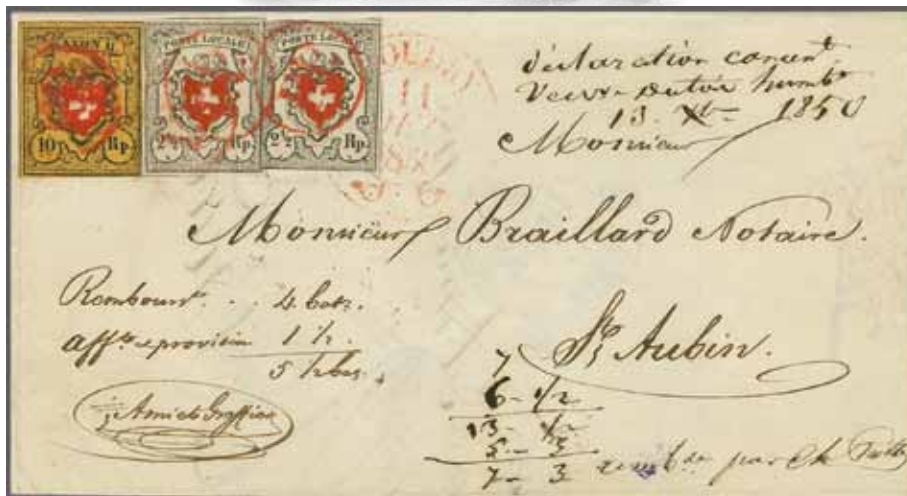 RAYON II.
10 Rp.
POSTE LOCALE
2½ Rp.
POSTE LOCALE
2½ Rp.
11
déclaration concernt
Veuve
13. Xbre 1850
Monsieur
Monsieur Braillard Notaire.
St Aubin.
Rembourst. . . 4 batz.
affrt & provision 1 ½.
5 ½ bas.
7
6 - 1/2
13 - 1/2
5 - 3
7 - 3 par Ch